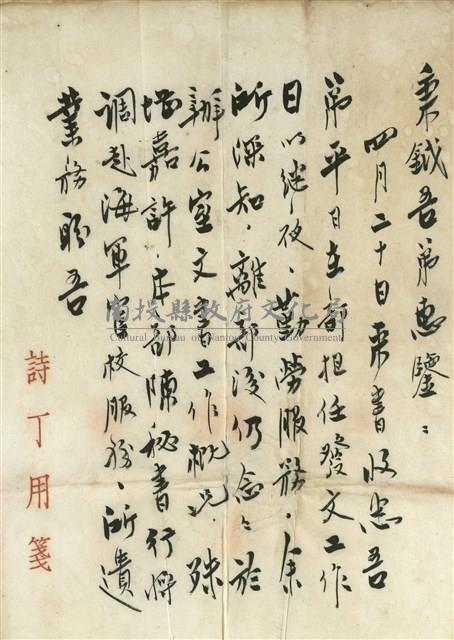 秉鉞吾弟惠鑒:
四月二十日來書收悉吾
弟平日在部担任發文工作
日以繼夜、勤勞服務、余
所深知、離部後仍念念於
辦公室文書工作概況、殊
堪嘉許、本部陳秘書行將
調赴海軍官校服務、所遺
業務盼吾
詩丁用箋
南投縣政府文化局
Cultural Bureau of Nantou County Government